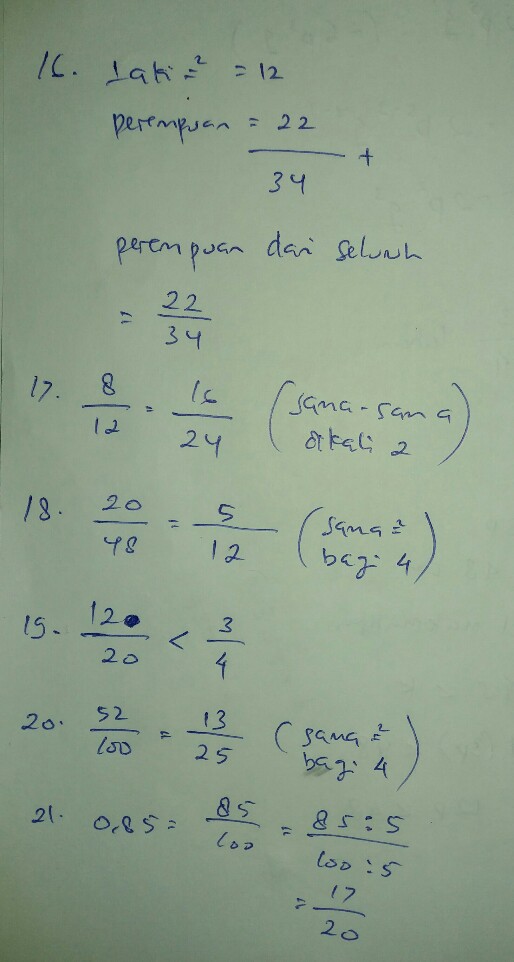 16. Laki² = 12
perempuan = 22
+
34
perempuan dari seluruh
= 22/34
17. 8/12 = 16/24 (sama-sama dikali 2)
18. 20/48 = 5/12 (sama² bagi 4)
19. 12/20 < 3/4
20. 52/100 = 13/25 (sama² bagi 4)
21. 0,85 = 85/100 = 85:5/100:5
= 17/20